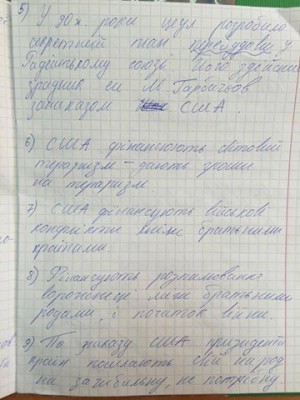 5) У 90х. роки ЦРУ розробило
секретний план перебудови у
Радянському союзі. Його здійснив
зрадник єи М. Гарбачов
за наказом США
6) США фінансують світовий
тераризм – дають гроши
на тераризм.
7) США фінансують військові
конфлікти між братьніми
країнами
8) Фінансують розпалювання
ворожнеце між братьніми
родами, і початок війни.
9) По приказу США президента
країн посилають свій народ
на загибильну, не потрібну